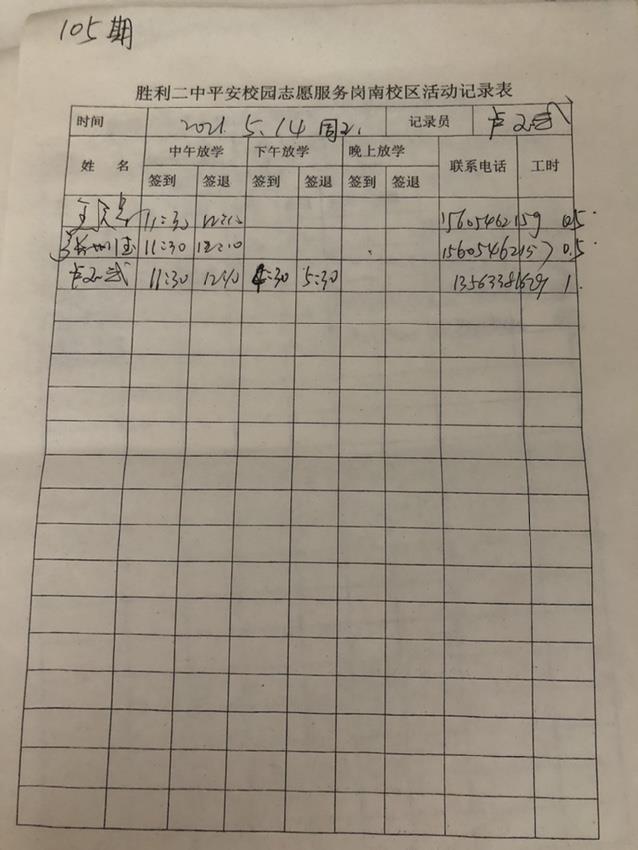 105期
胜利二中平安校园志愿服务岗南校区活动记录表
时间 2021.5.14 周2. 记录员 卢
姓 名 中午放学 下午放学 晚上放学 联系电话 工时
签到 签退 签到 签退 签到 签退
11:30 12:10 15605462159 0.5
11:30 12:10 15605462157 0.5
卢 11:30 12:10 4:30 5:30 1.